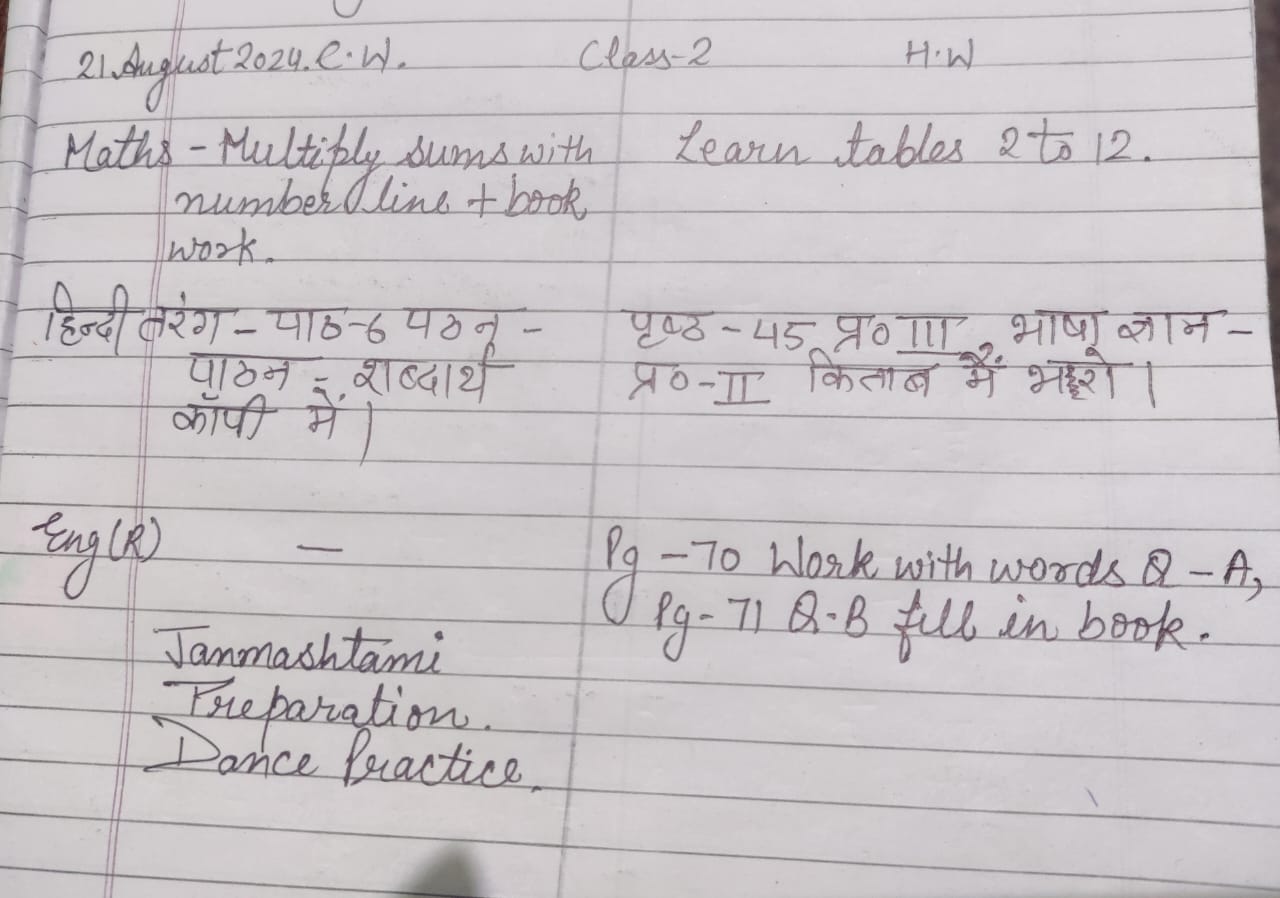 21 August 2024. C.W. Class-2 H.W
Maths - Multiply sums with Learn tables 2 to 12.
number line + book
work.
हिन्दी तरंग - पाठ-6 पठन - पृष्ठ - 45 प्र० III, भाषा ज्ञान -
पाठन - शब्दार्थ प्र० - II किताब में भरो।
कॉपी में।
Eng (R) — Pg - 70 Work with words Q - A,
Pg - 71 Q-B fill in book.
Janmashtami
Preparation.
Dance Practice.